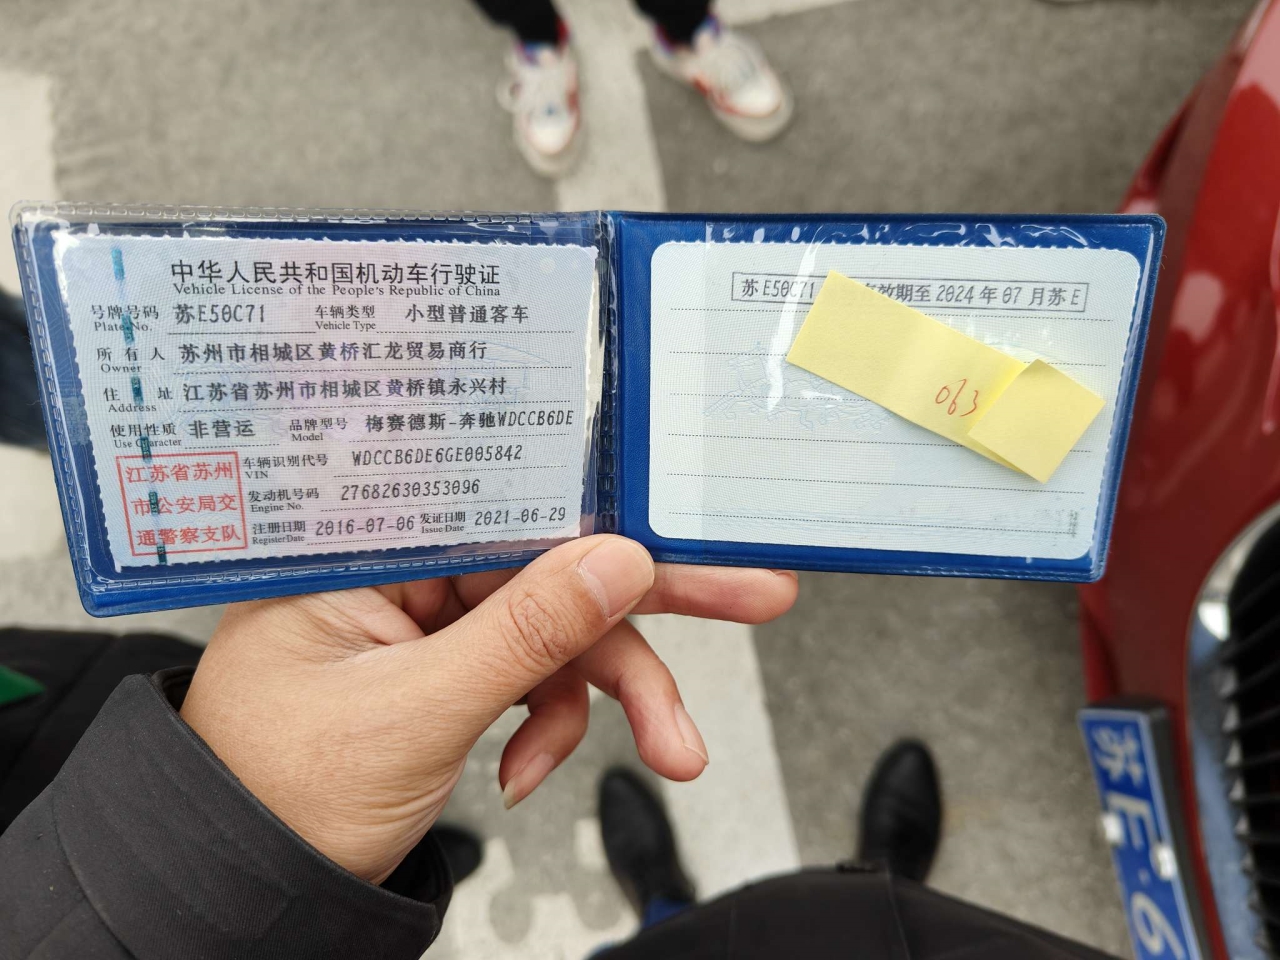 中华人民共和国机动车行驶证
Vehicle License of the People's Republic of China
号牌号码 苏E50C71 车辆类型 小型普通客车
Plate No. Vehicle Type
所有人 苏州市相城区黄桥汇龙贸易商行
Owner
住址 江苏省苏州市相城区黄桥镇永兴村
Address
使用性质 非营运 品牌型号 梅赛德斯-奔驰WDCCB6DE
Use Character Model
车辆识别代号 WDCCB6DE6GE005842
VIN
发动机号码 27682630353096
Engine No.
注册日期 2016-07-06 发证日期 2021-06-29
Register Date Issue Date
江苏省苏州
市公安局交
通警察支队
苏E50C71 效期至2024年07月苏E
063
苏E·6